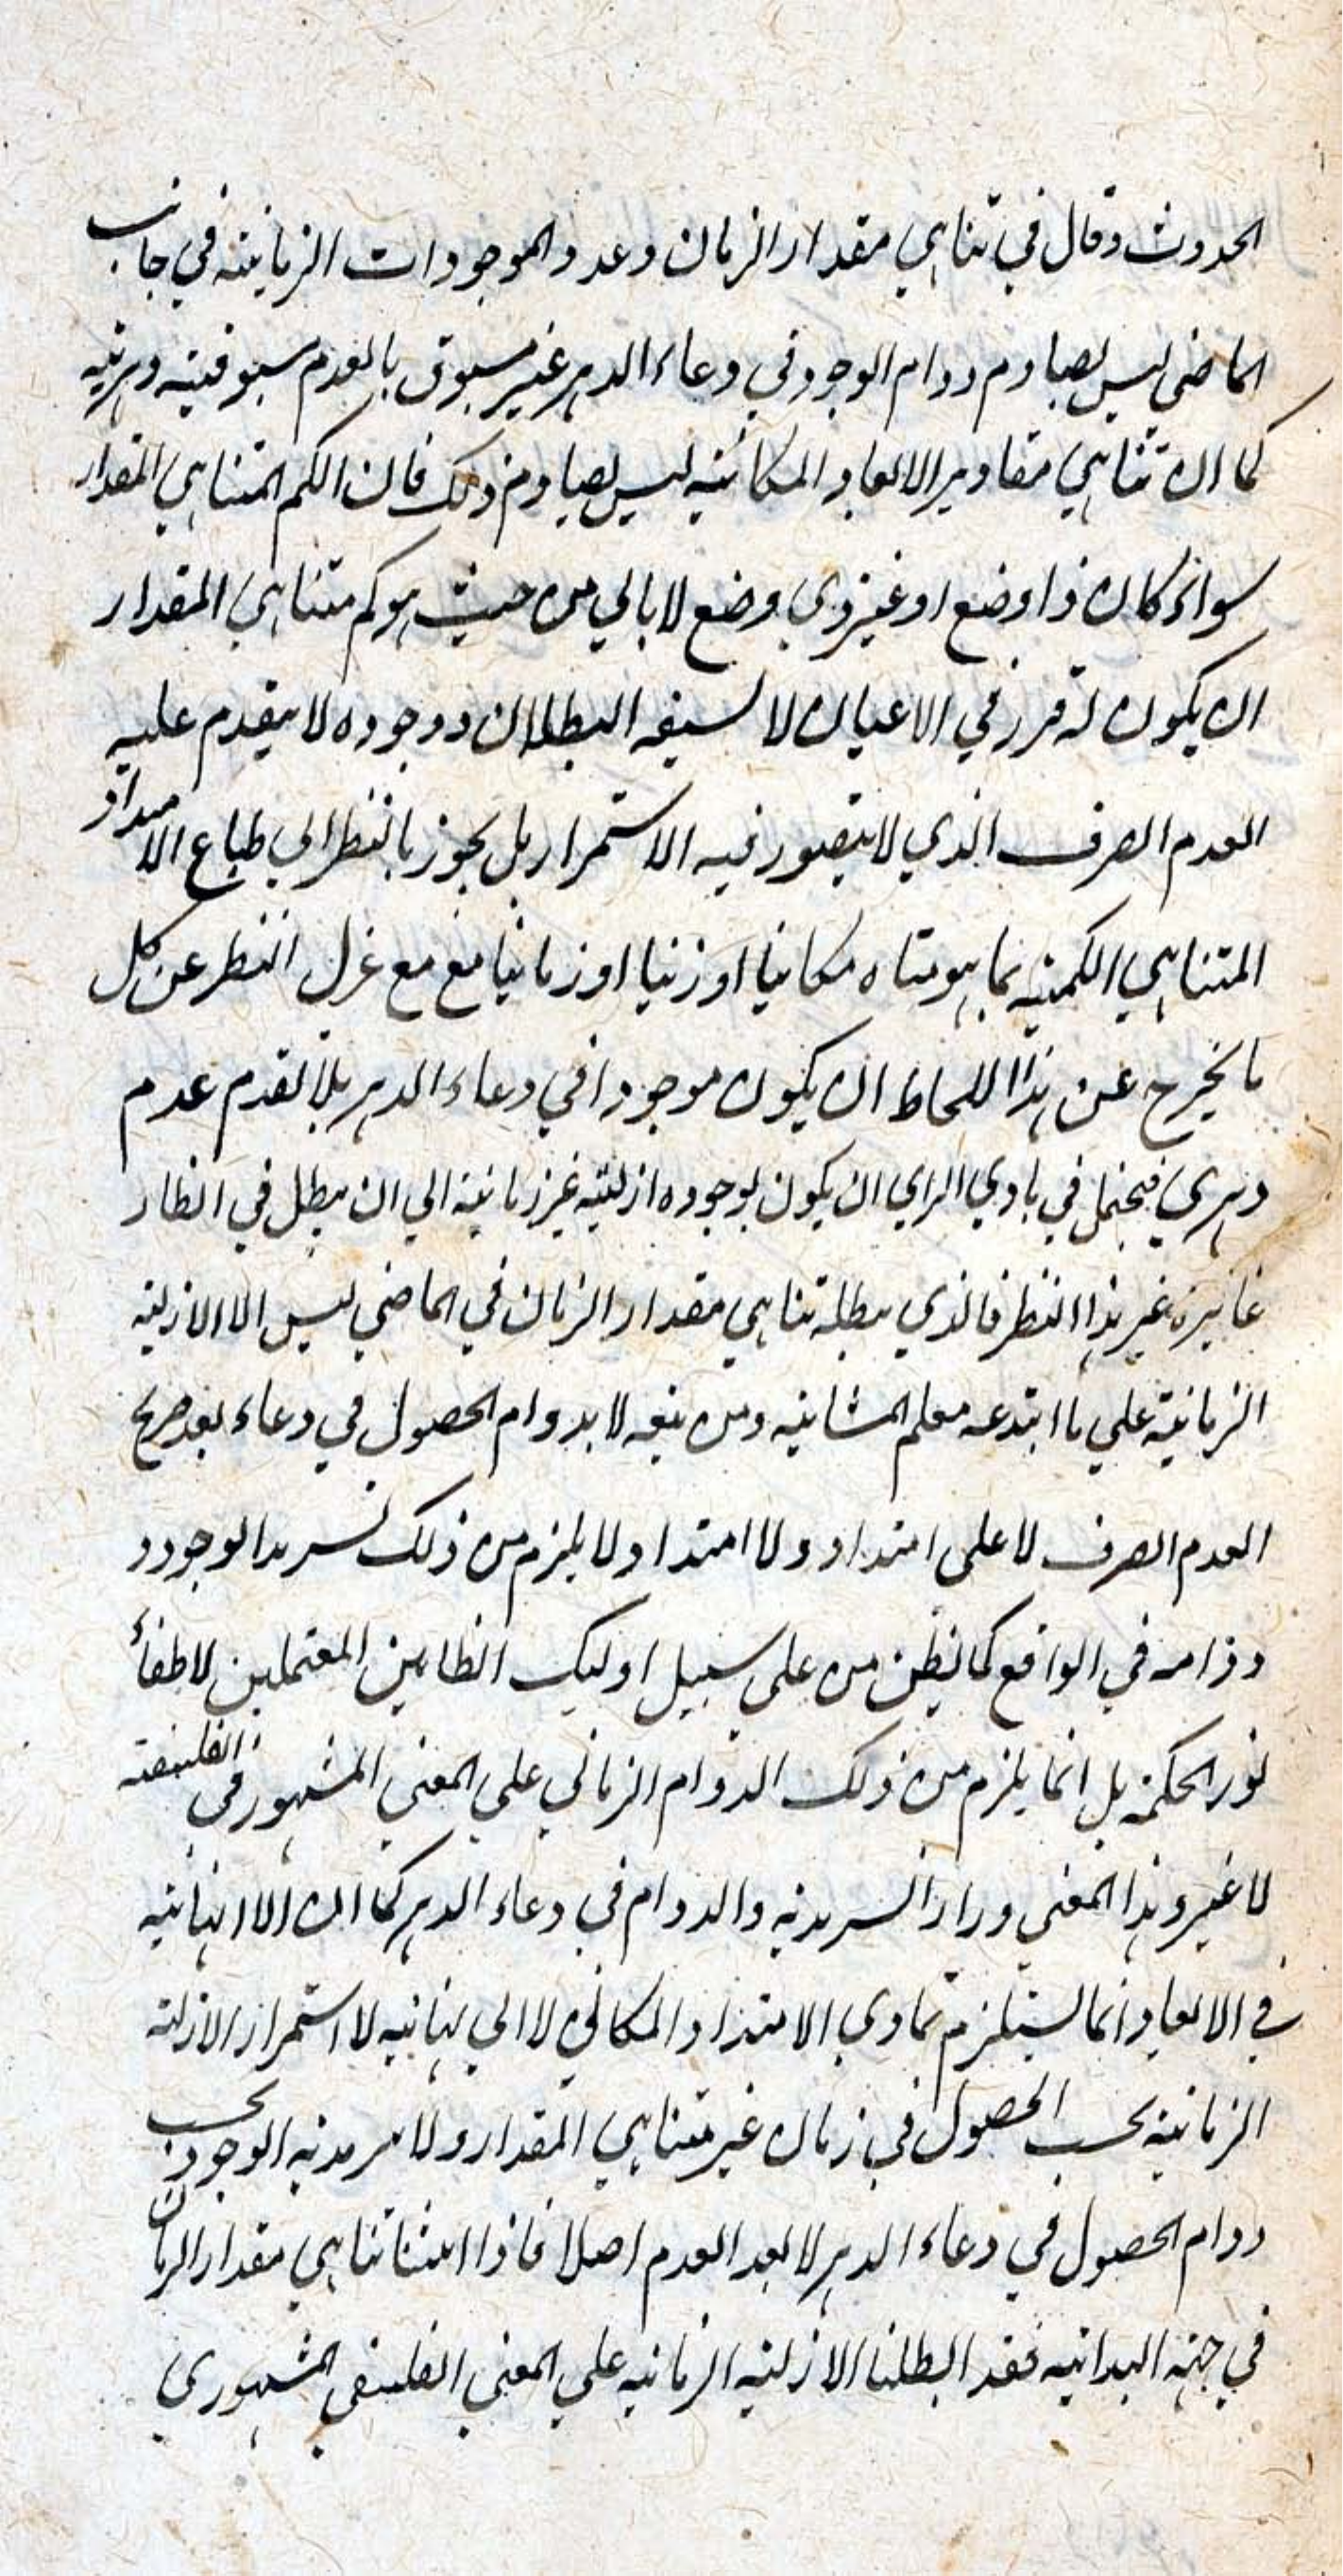 الحدوث وقال في تناهي مقدار الزمان وعدد الموجودات الزمانية في جانب
الماضي ليس يصادم دوام الوجود في وعاء الدهر غير مسبوق بالعدم مسبوقية دهرية
كما ان تناهي مقادير الابعاد المكانية ليس يصادم ذلك فان الكم المتناهي المقدار
سواء كان ذا وضع او غير ذي وضع لا يابي من حيث هو كم متناهي المقدار
ان يكون له تقرر في الاعيان لا يسبقه البطلان ووجوده لا يتقدم عليه
العدم الصرف الذي لا يتصور فيه الاستمرار بل يجوز بالنظر الي طباع الامتداد
المتناهي الكمية بما هو متناه مكانيا او زمانيا مع عزل النظر عن كل
ما يخرج عن هذا اللحاظ ان يكون موجودا في وعاء الدهر بلا تقدم عدم
دهري فيحتمل في بادي الراي ان يكون لوجوده ازلية غير زمانية الي ان يبطل في انظار
غائرة غير هذا النظر فالذي يبطله تناهي مقدار الزمان في الماضي ليس الا الازلية
الزمانية علي ما ابتدعه معلم المشائية ومن تبعه لا بدوام الحصول في وعاء بعد صريح
العدم الصرف لا على امتداد ولا امتداد ولا يلزم من ذلك تسرمد الوجود و
دوامه في الواقع كما يظن من على سبيل اوليك الظانين المعتملين لاطفاء
نور الحكمة بل انما يلزم من ذلك الدوام الزماني علي المعني المشهور في الفلسفة
لا غير وهذا المعني وراء السرمدية والدوام في وعاء الدهر كما ان اللانهائية
في الابعاد انما يستلزم تمادي الامتداد المكاني لا الي نهاية لا استمرار الازلية
الزمانية بحسب الحصول في زمان غير متناهي المقدار ولا سرمدية الوجود بحسب
دوام الحصول في وعاء الدهر لا بعد العدم اصلا فاذا اثبتنا تناهي مقدار الزمان
في جهة البداية فقد ابطلنا الازلية الزمانية علي المعني الفلسفي المشهوري